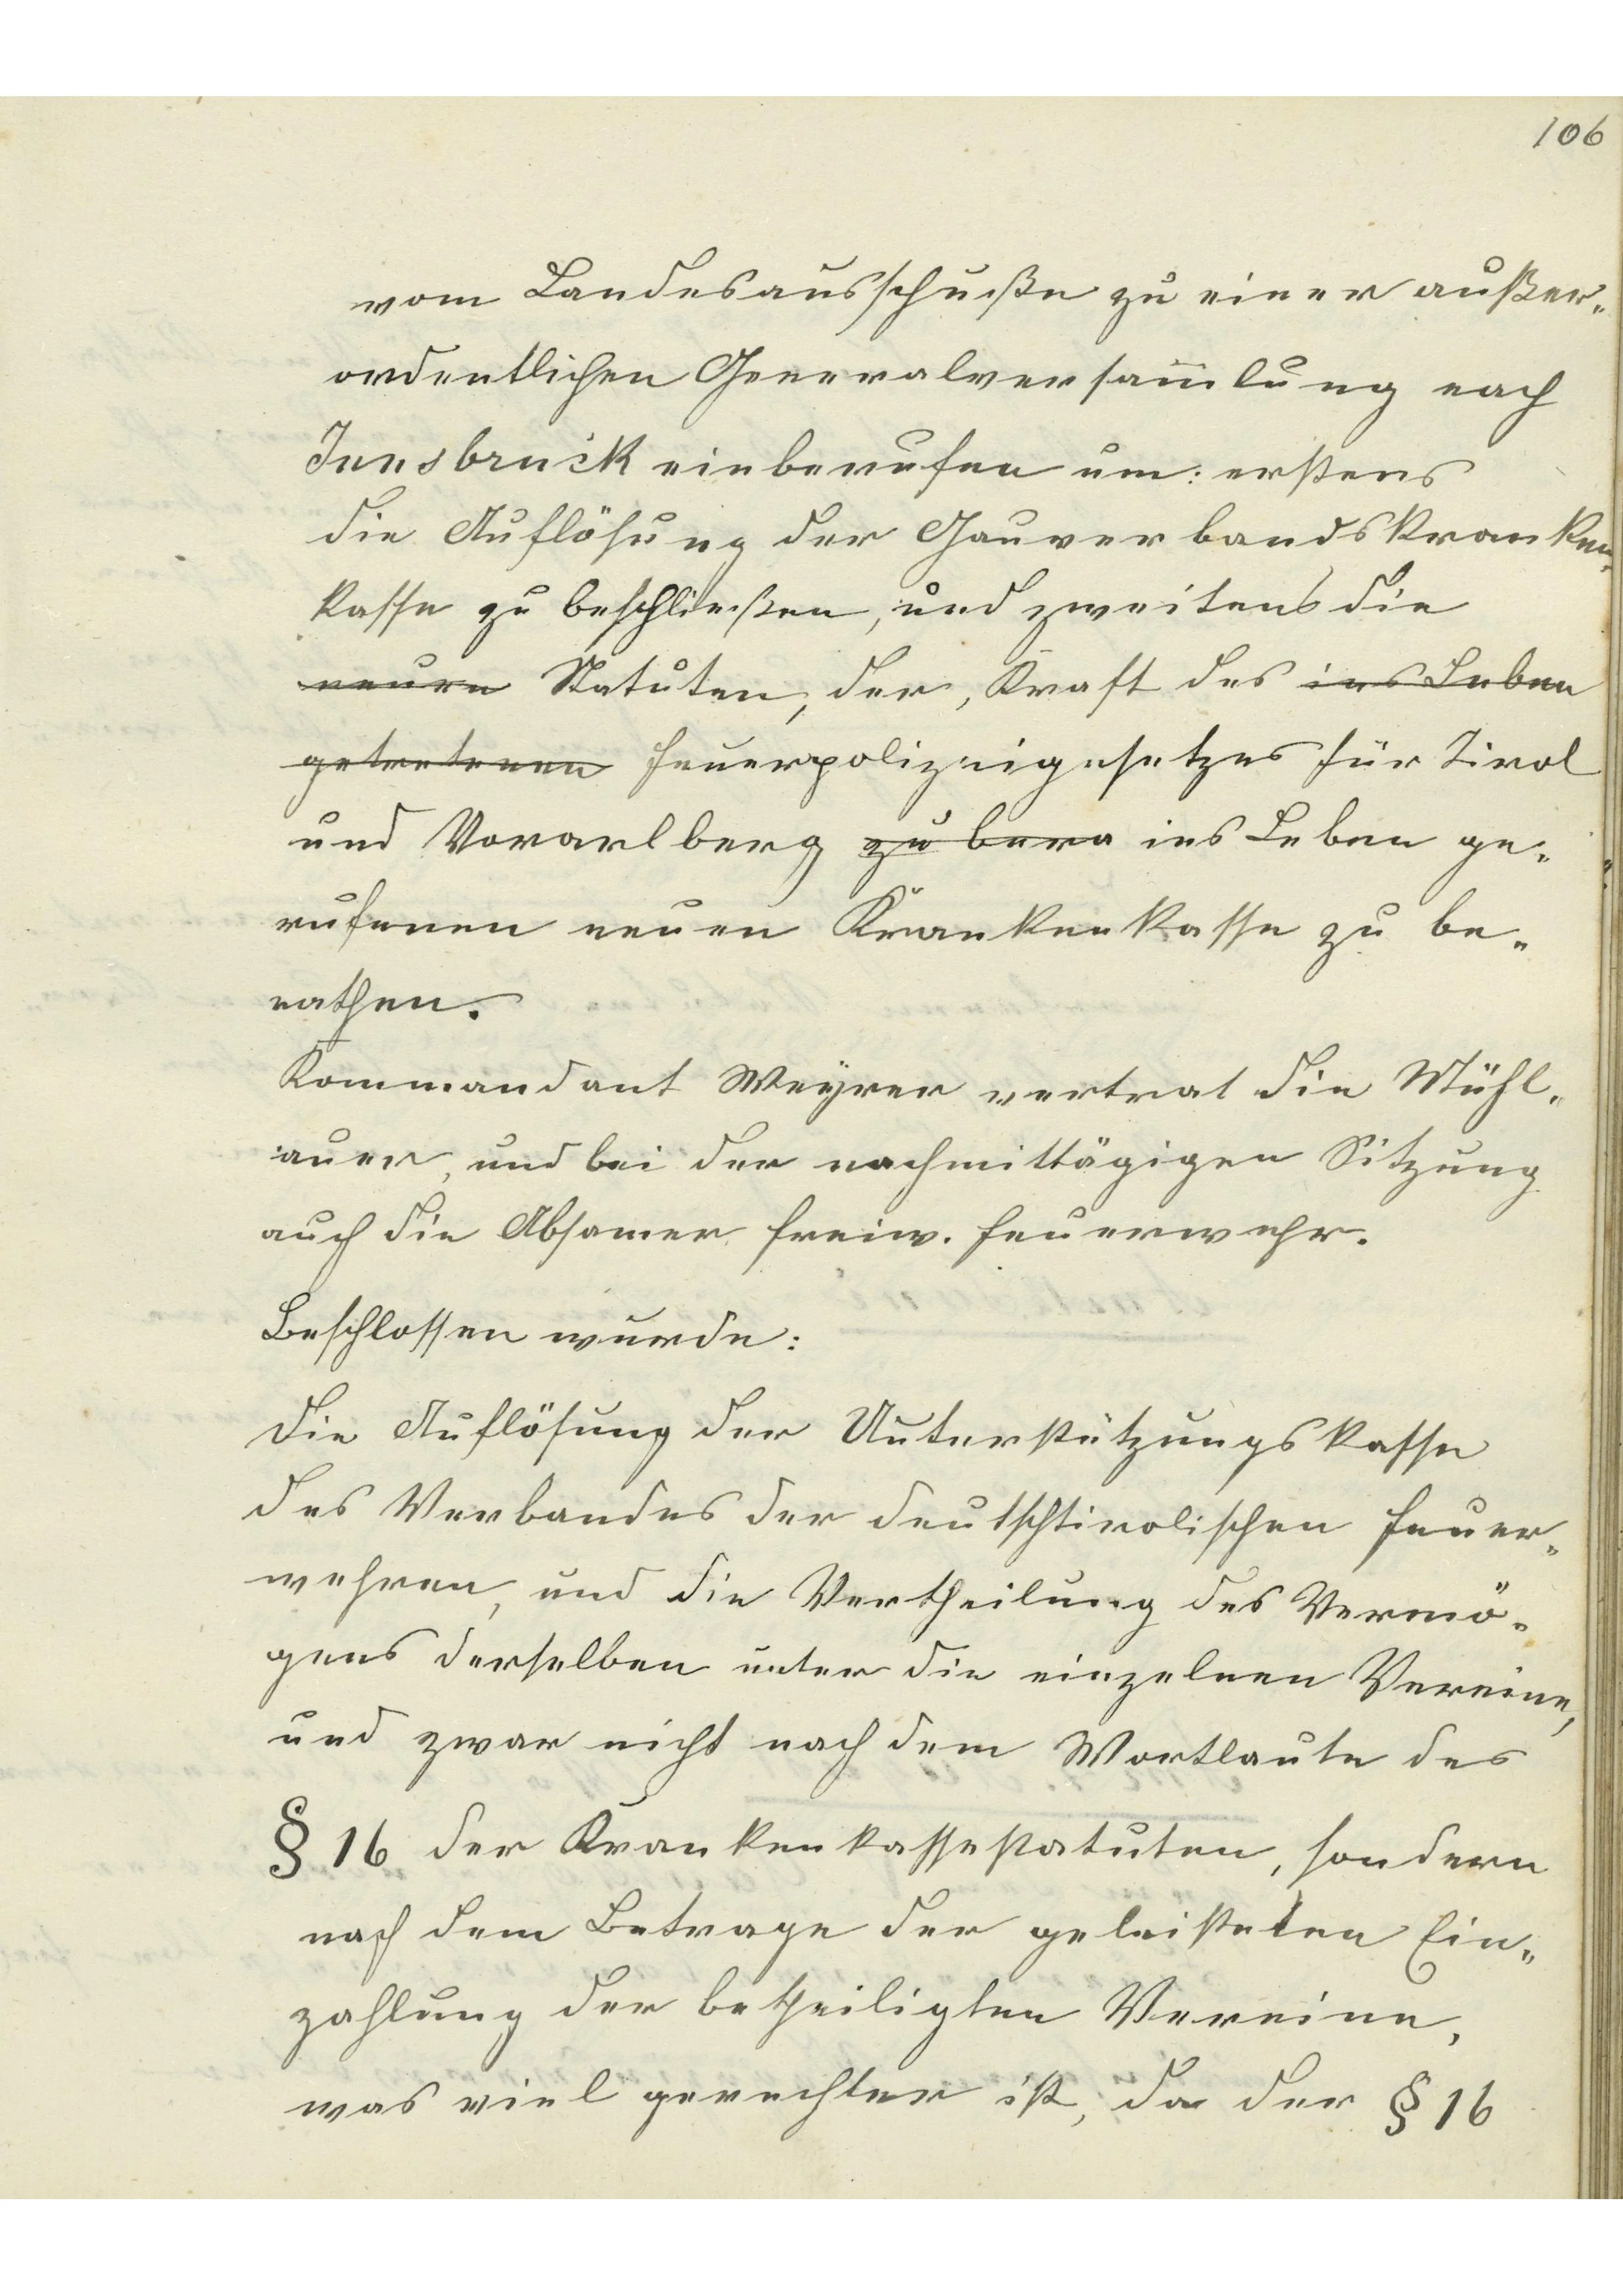 106
vom Landesausschuße zu einer außer-
ordentlichen Generalversam̅lung nach
Innsbruck einberufen um: erstens
die Auflösung der Gauverbandskranken-
kasse zu beschließen, und zweitens die
neuen Statuten, der, Kraft des ins Leben
getretenen Feuerpolizeigesetzes für Tirol
und Vorarlberg zu bera ins Leben ge-
rufenen neuen Krankenkasse zu be-
rathen.
Kommandant Weyrer vertrat die Mühl-
auer, und bei der nachmittägigen Sitzung
auch die Absamer freiw. Feuerwehr.
Beschlossen wurde:
Die Auflösung der Unterstützungskasse
des Verbandes der deutschtirolischen Feuer-
wehren, und die Vertheilung des Vermö-
gens derselben unter die einzelnen Vereine,
und zwar nicht nach dem Wortlaute des
§ 16 der Krankenkassestatuten, sondern
nach dem Betrage der geleisteten Ein-
zahlung der betheiligten Vereine,
was viel gerechter ist, da der § 16